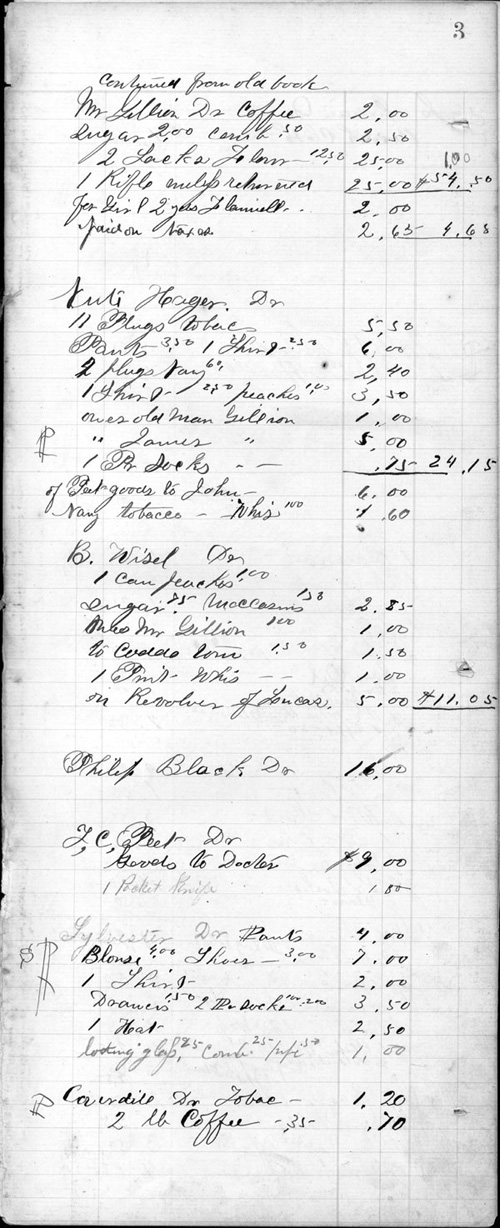 3
Continued from old book
Mr Gillion Dr Coffee 2.00
Sugar 2,00 comb .50 2.50
2 Sacks Flour — 12,50 25.00 1,00
1 Rifle returned 25.00 $54.50
for Girl 2 yds Flannell . . 2.00
Paid on 2.65 4.65
Hager. Dr
11 Plugs tobac 5,50
Pants 3,50 1 Shirt - 2.50 6,00
4 plugs Navy 60 2,40
1 Shirt - 2,50 peaches 1,00 3,50
owes old man Gillion 1,00
" James " 5,00
1 Pr Socks - - .75 24.15
of Peet goods to John — 6.00
Navy tobacco - Whis 1.00 1.60
B. Wisel Dr
1 can peaches 1.00
Sugar .85 Moccasins 1.50 2.85
Mr Gillion 1.00 1,00
to 1.50 1.50
1 Pint Whis - - 1.00
on Revolver of Loucas. 5,00 $11.05
Philip Black Dr 16,00
Peet Dr
Goods to Docter $9,00
1 Pocket Knife 1.50
Sylvester Dr Pants 4.00
Blouse 4,00 Shoes — 3,00 7,00
1 Shirt 2,00
Drawers 1,50 2 Pr Socks 1.00 2.00 3,50
1 Hat 2,50
looking glass, .25 Comb .25 .50 1,00
Dr Tobac — 1,20
2 lb Coffee - .35 - .70